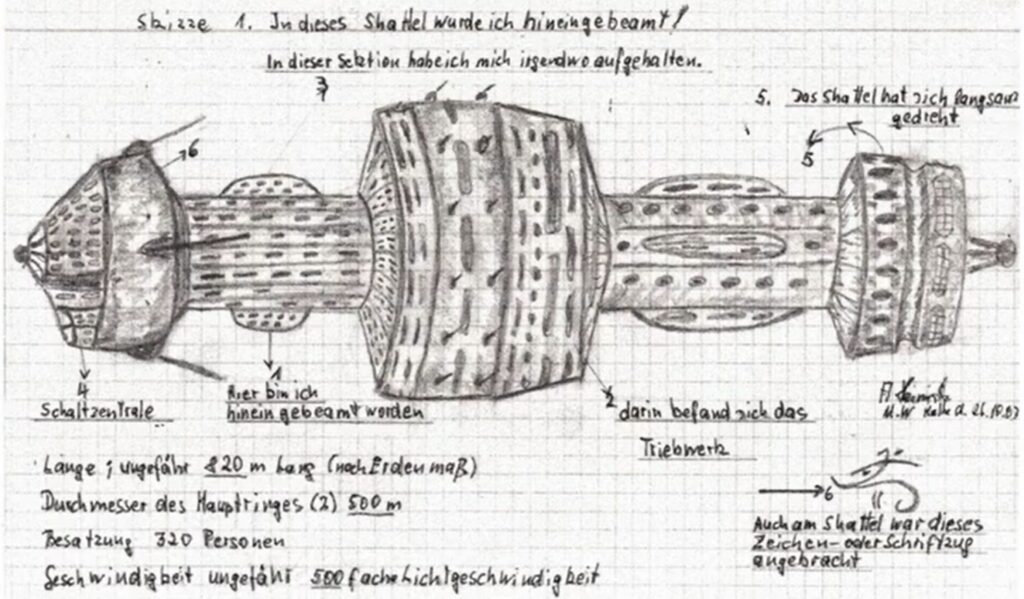 Skizze 1. In dieses Shattel wurde ich hineingebeamt!
In dieser Sektion habe ich mich irgendwo aufgehalten.
3
5. Das Shattel hat sich langsam
gedreht
5
6
4
Schaltzentrale
1
Hier bin ich
hineingebeamt worden
2 darin befand sich das
Triebwerk
M.W
Länge ; ungefähr 820 m lang (nach Erdenmaß)
Durchmesser des Hauptringes (2) 500 m
Besatzung 320 Personen
Geschwindigkeit ungefähr 500 fache Lichtgeschwindigkeit
6
Auch am Shattel war dieses
Zeichen- oder Schriftzug
angebracht